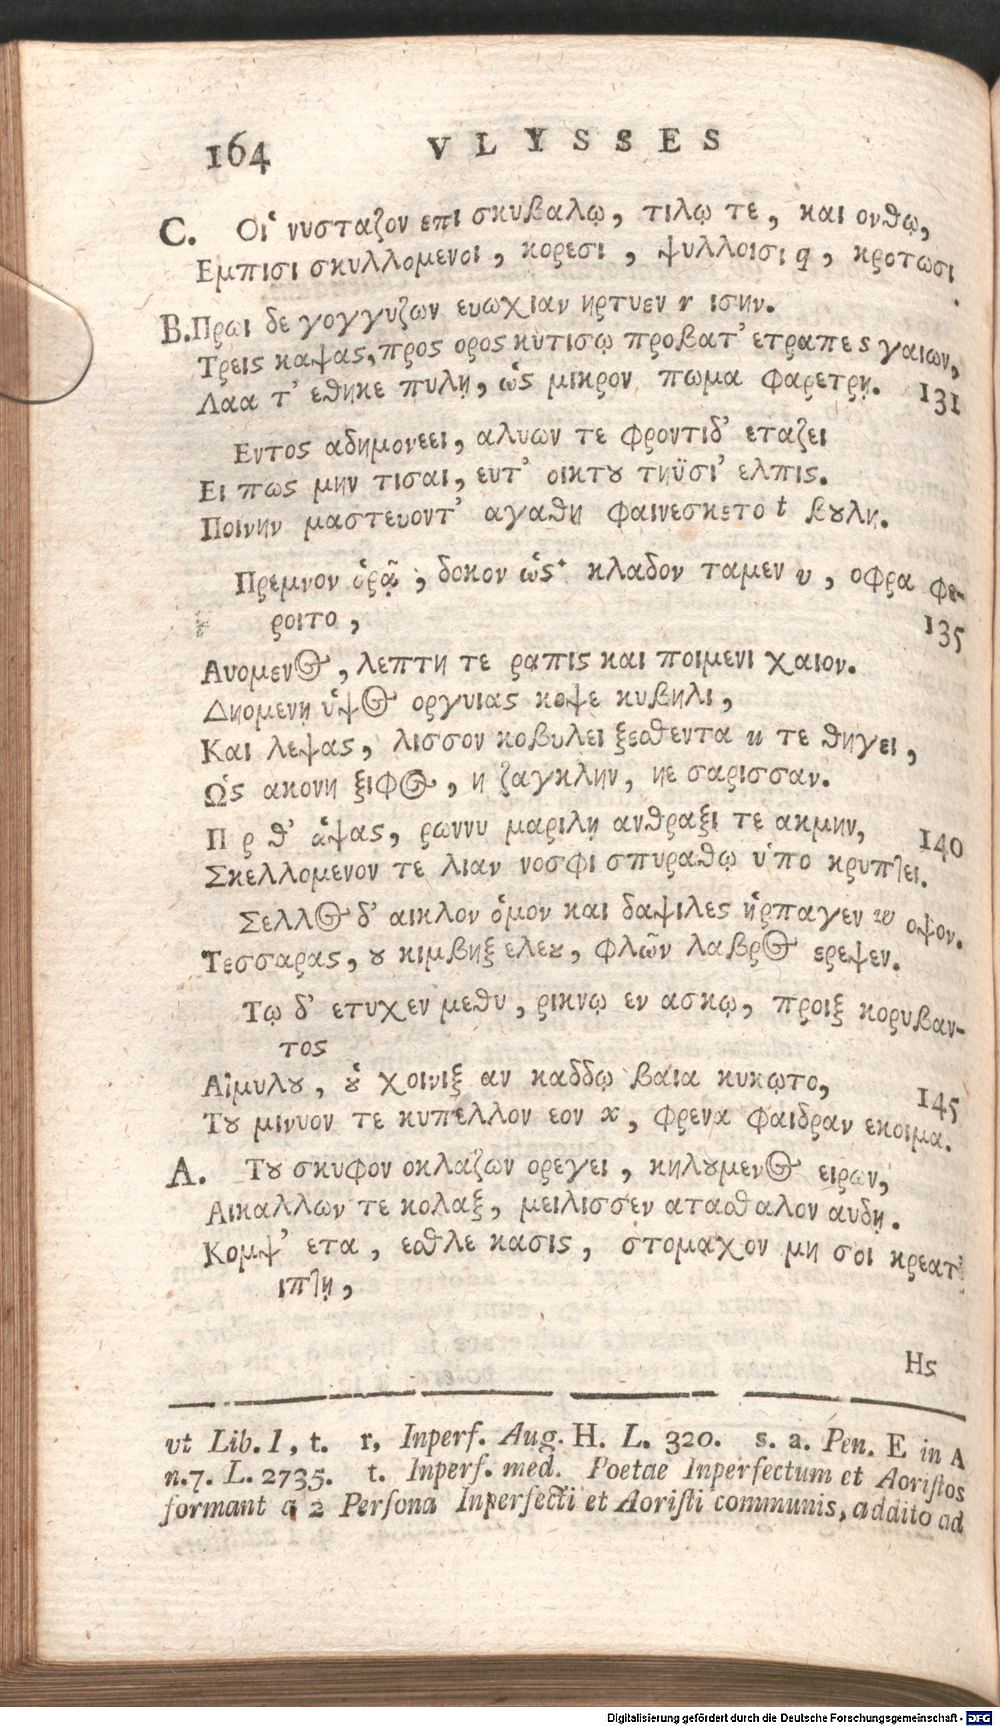 164 VLYSSES
C. Οἱ νυσταζον επι σκυβαλῳ, τιλῳ τε, και ονθῳ,
Εμπισι σκυλλομενοι, κορεσι, ψυλλοισι q, κροτωσι.
B. Πρωι δε γογγυζων ευωχιαν ηρτυεν r ισην.
Τρεις καψας, προς ορος κυτισῳ προβατ' ετραπε s γαιων,
Λαα τ' εθηκε πυλῃ, ὡς μικρον πωμα φαρετρῃ. 131
Εντος αδημονεει, αλυων τε φροντιδ' εταζει
Ει πως μην τισαι, ευτ' οικτȣ τηϋσι' ελπις.
Ποινην μαστευοντ' αγαθη φαινεσκετο t βȣλη.
Πρεμνον ὁρᾷ, δοκον ὡς· κλαδον ταμεν υ, οφρα φε-
ροιτο, 135
Αυομενος, λεπτη τε ραπις και ποιμενι χαιον.
Δηομενη ὑψος οργυιας κοψε κυβηλι,
Και λεψας, λισσον κοβυλει ξεσθεντα u τε θηγει,
Ὡς ακονη ξιφος, η ζαγκλην, ηε σαρισσαν.
Π ρ θ' ἁψας, ρωννυ μαριλη ανθραξι τε ακμην, 140
Σκελλομενον τε λιαν νοσφι σπυραθῳ ὑπο κρυπτει.
Σελλος δ' αικλον ὁμον και δαψιλες ἡρπαγεν w οψον.
Τεσσαρας, ȣ κιμβηξ ελεȣ, φλῶν λαβρος ερεψεν.
Τῳ δ' ετυχεν μεθυ, ρικνῳ εν ασκῳ, προιξ κορυβαν-
τος
Αἱμυλȣ, ȣ̔ χοινιξ αν καδδῳ βαια κυκῳτο, 145
Τȣ μινυον τε κυπελλον εον x, φρενα φαιδραν εκοιμα.
A. Τȣ σκυφον οκλαζων ορεγει, κηλȣμενος ειρων,
Αικαλλων τε κολαξ, μειλισσεν ατασθαλον αυδῃ.
Κομψ' ετα, εσθλε κασις, στομαχον μη σοι κρεατ'
ιπτῃ,
Ης
vt Lib. I, t. r, Inperf. Aug. H. L. 320. s. a. Pen. E in A
n.7. L. 2735. t. Inperf. med. Poetae Inperfectum et Aoristos
formant a 2 Persona Inperfecti et Aoristi communis, addito ad
Digitalisierung gefördert durch die Deutsche Forschungsgemeinschaft - DFG